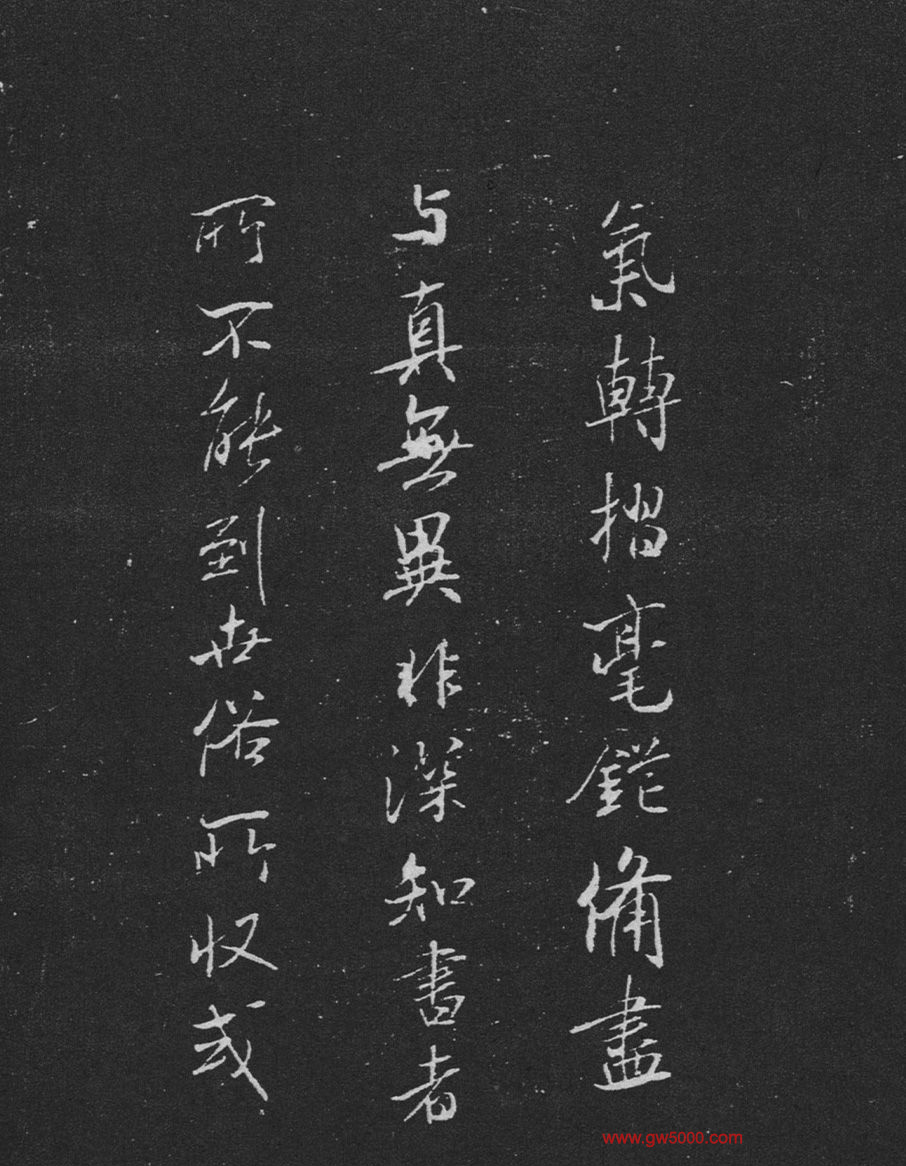 氣轉摺毫鋩備盡
与真無異非深知書者
所不能到世俗所收或
www.gw5000.com